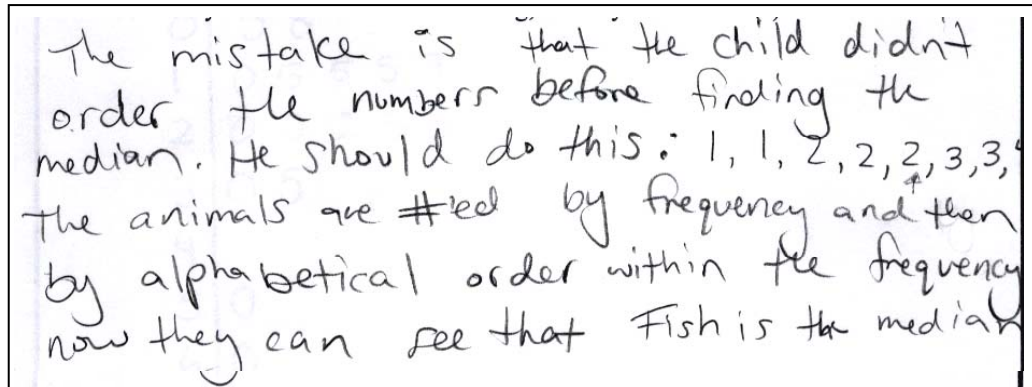 The mistake is that the child didnt
order the numbers before finding the
median. He should do this: 1, 1, 2, 2, 2, 3, 3,
↑
The animals are #'ed by frequency and then
by alphabetical order within the frequency
now they can see that Fish is the median